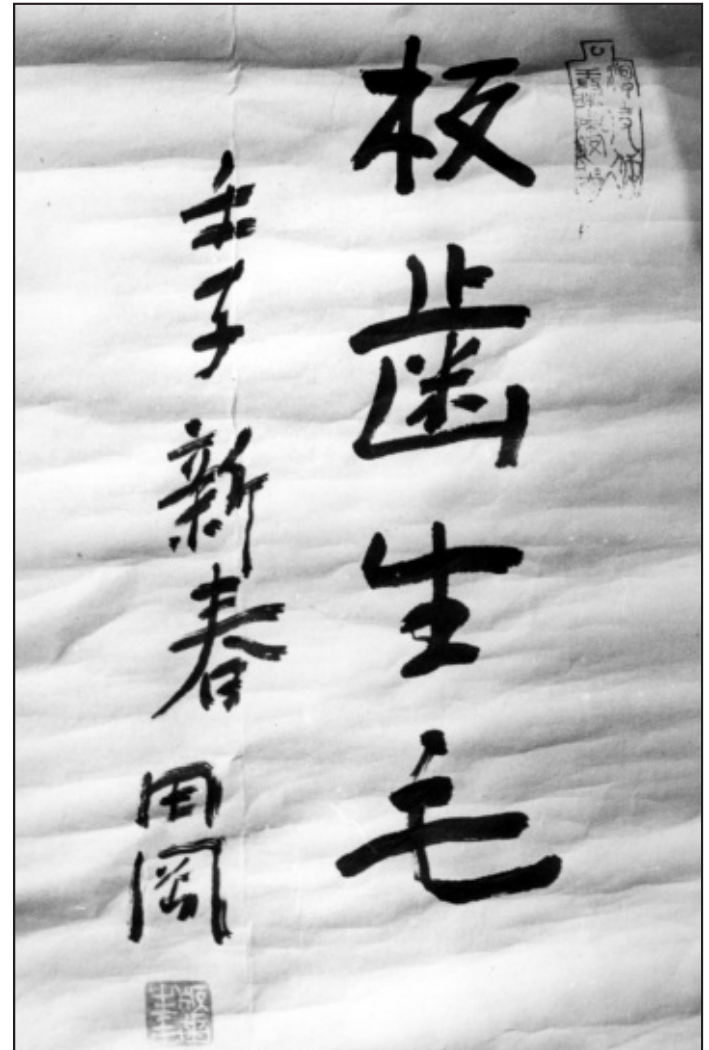 板歯生毛
壬子新春 岡